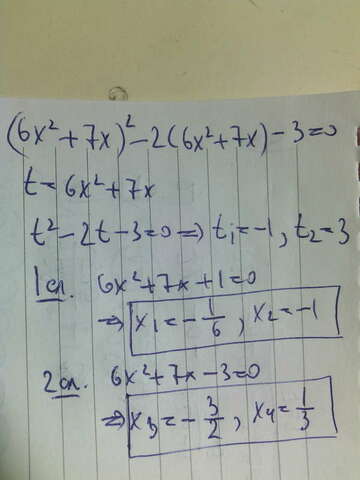 (6x²+7x)²-2(6x²+7x)-3=0
t=6x²+7x
t²-2t-3=0 ⇒ t₁=-1, t₂=3
1сл. 6x²+7x+1=0
⇒ x₁=-1/6, x₂=-1
2сл. 6x²+7x-3=0
⇒ x₃=-3/2, x₄=1/3